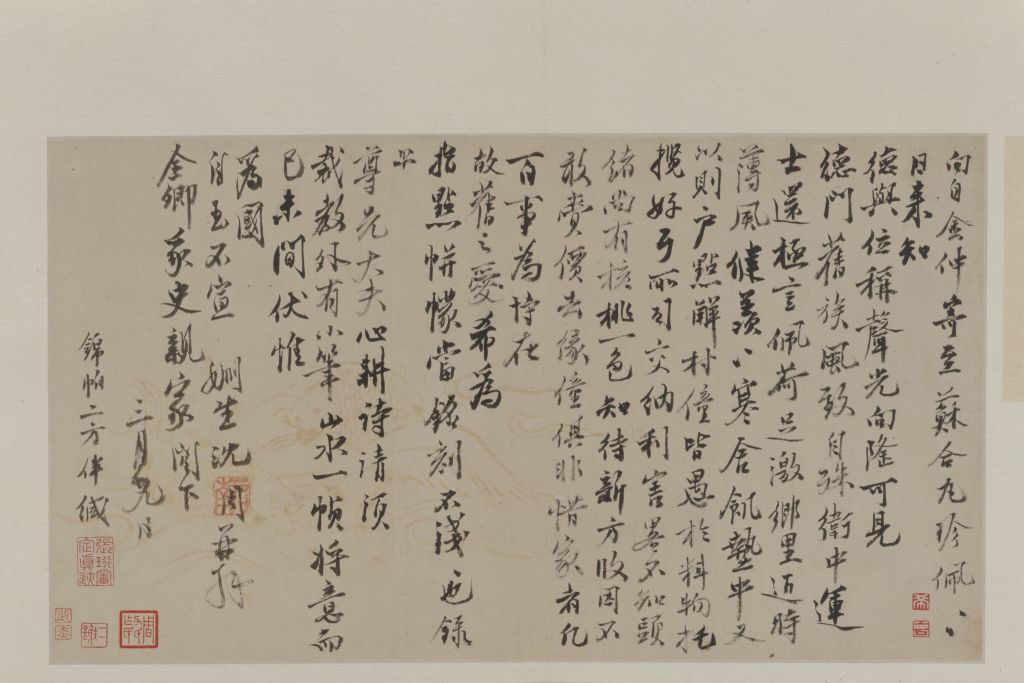 向自金仲寄至蘇合九珍佩、
日來知
德與位稱聲光向隆可見
德門舊族風致自殊衛中運
士還極言佩荷足激鄉里近時
薄風健羨、寒舍飢墊中又
以則戶點解村僮皆愚於料物扥
攬好歹所引交納利害畧不知頭
緒尚有
桃一色知待新方收因不
敢費價去緣僮俱非惜家者凡
百事為恃在
故舊之愛希為
指點帡幪當銘刻不淺也錄
上
尊兄大夫心耕詩請須
裁教外有小筆山水一幀將意而
已未間伏惟
為國
自玉不宣 姻生沈周再拜
全卿
史親家閣下
三月九日
錦帕二方伴緘